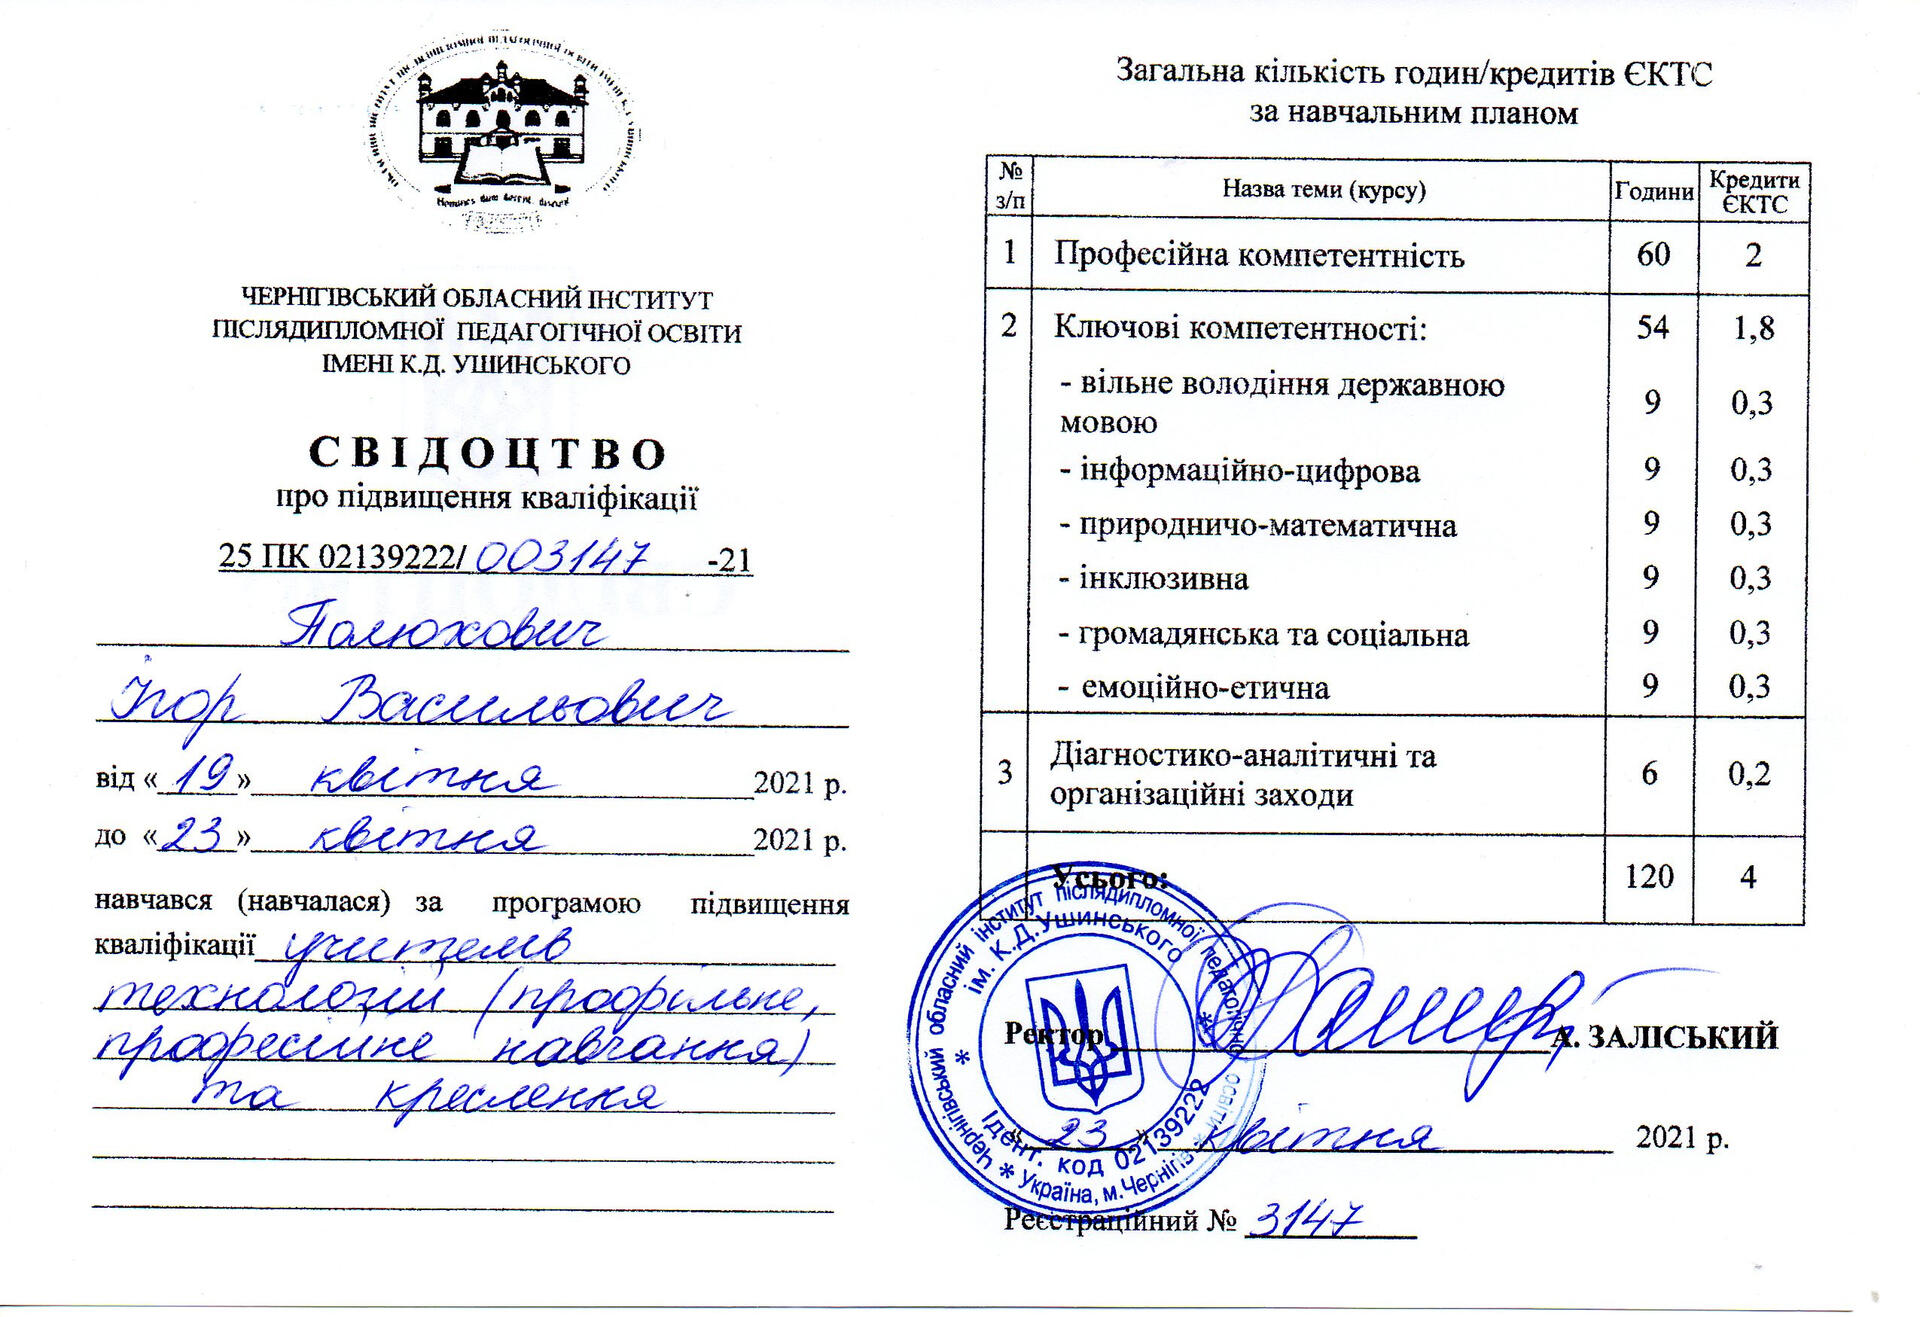 ЧЕРНІГІВСЬКИЙ ОБЛАСНИЙ ІНСТИТУТ
ПІСЛЯДИПЛОМНОЇ ПЕДАГОГІЧНОЇ ОСВІТИ
ІМЕНІ К.Д. УШИНСЬКОГО
СВІДОЦТВО
про підвищення кваліфікації
25 ПК 02139222/ 003147 -21
Полюхович
Ігор Васильович
від «19» квітня 2021 р.
до «23» квітня 2021 р.
навчався (навчалася) за програмою підвищення
кваліфікації учителів
технологій (профільне,
професійне навчання)
та креслення
Загальна кількість годин/кредитів ЄКТС
за навчальним планом
№ з/п Назва теми (курсу) Години Кредити ЄКТС
1 Професійна компетентність 60 2
2 Ключові компетентності: 54 1,8
- вільне володіння державною
мовою 9 0,3
- інформаційно-цифрова 9 0,3
- природничо-математична 9 0,3
- інклюзивна 9 0,3
- громадянська та соціальна 9 0,3
- емоційно-етична 9 0,3
3 Діагностико-аналітичні та
організаційні заходи 6 0,2
Усього: 120 4
Чернігівський обласний інститут післядипломної педагогічної освіти
ім. К.Д.Ушинського
Ідент. код 02139222
* Україна, м.Чернігів *
Ректор А. ЗАЛІСЬКИЙ
«23» квітня 2021 р.
Реєстраційний № 3147